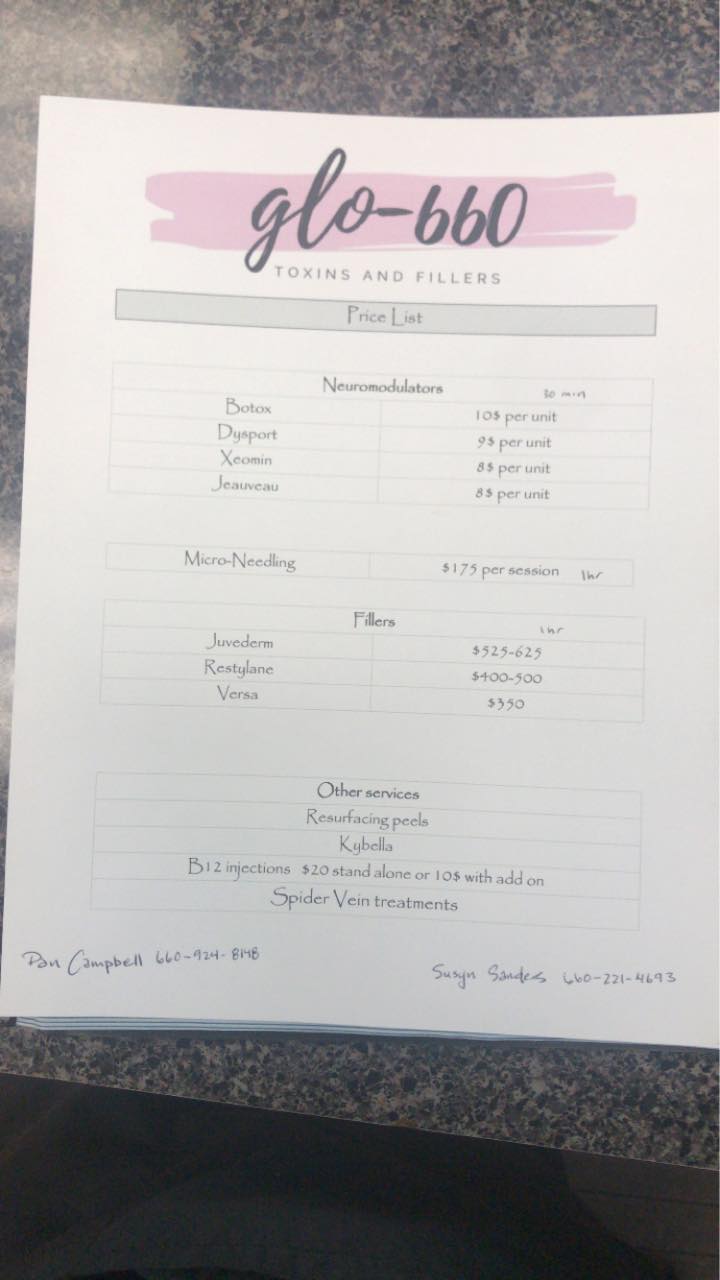 glo-660
TOXINS AND FILLERS
Price List
Neuromodulators 30 min
Botox 10$ per unit
Dysport 9$ per unit
Xeomin 8$ per unit
Jeauveau 8$ per unit
Micro-Needling $175 per session 1hr
Fillers 1hr
Juvederm $525-625
Restylane $400-500
Versa $350
Other services
Resurfacing peels
Kybella
B12 injections $20 stand alone or 10$ with add on
Spider Vein treatments
Campbell 660-924-8148
Susyn Sandes 660-221-4693